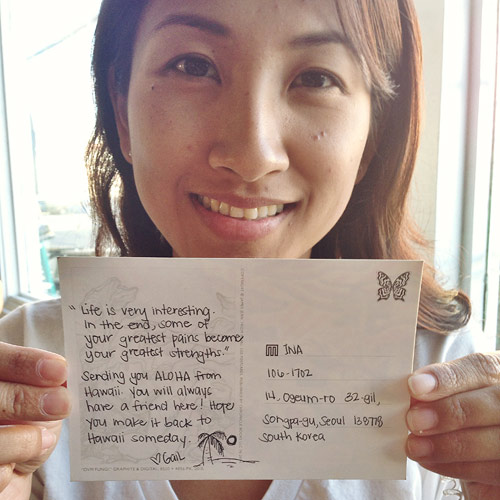 "Life is very interesting.
In the end, some of
your greatest pains become
your greatest strengths."
Sending you ALOHA from
Hawaii. You will always
have a friend here! Hope
you make it back to
Hawaii someday.
♡Gail
INA
106-1702
14, Ogeum-ro 32-gil,
Songpa-gu, Seoul 138778
South Korea